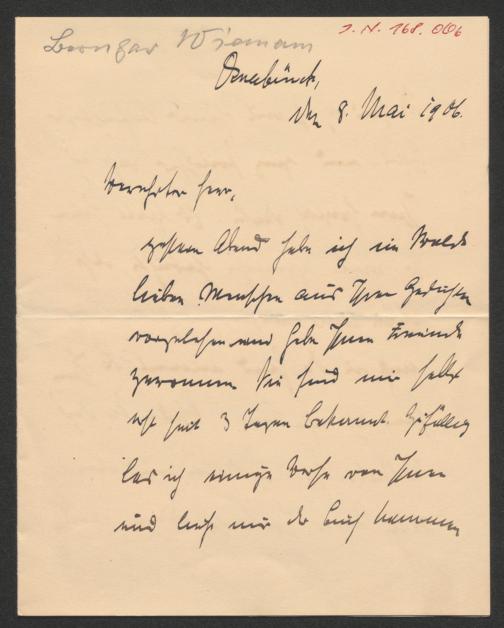 J. N. 168.006
Bernhard Wiemann
Osnabrück,
den 8. Mai 1906.
Verehrter Herr,
gestern Abend habe ich im Walde
lieben Menschen aus Ihren Gedichten
vorgelesen und habe Ihnen Freunde
gewonnen. Sie sind mir selbst
erst seit 3 Tagen bekannt. Zufällig
las ich einige Verse von Ihnen
und ließ mir das Buch kommen